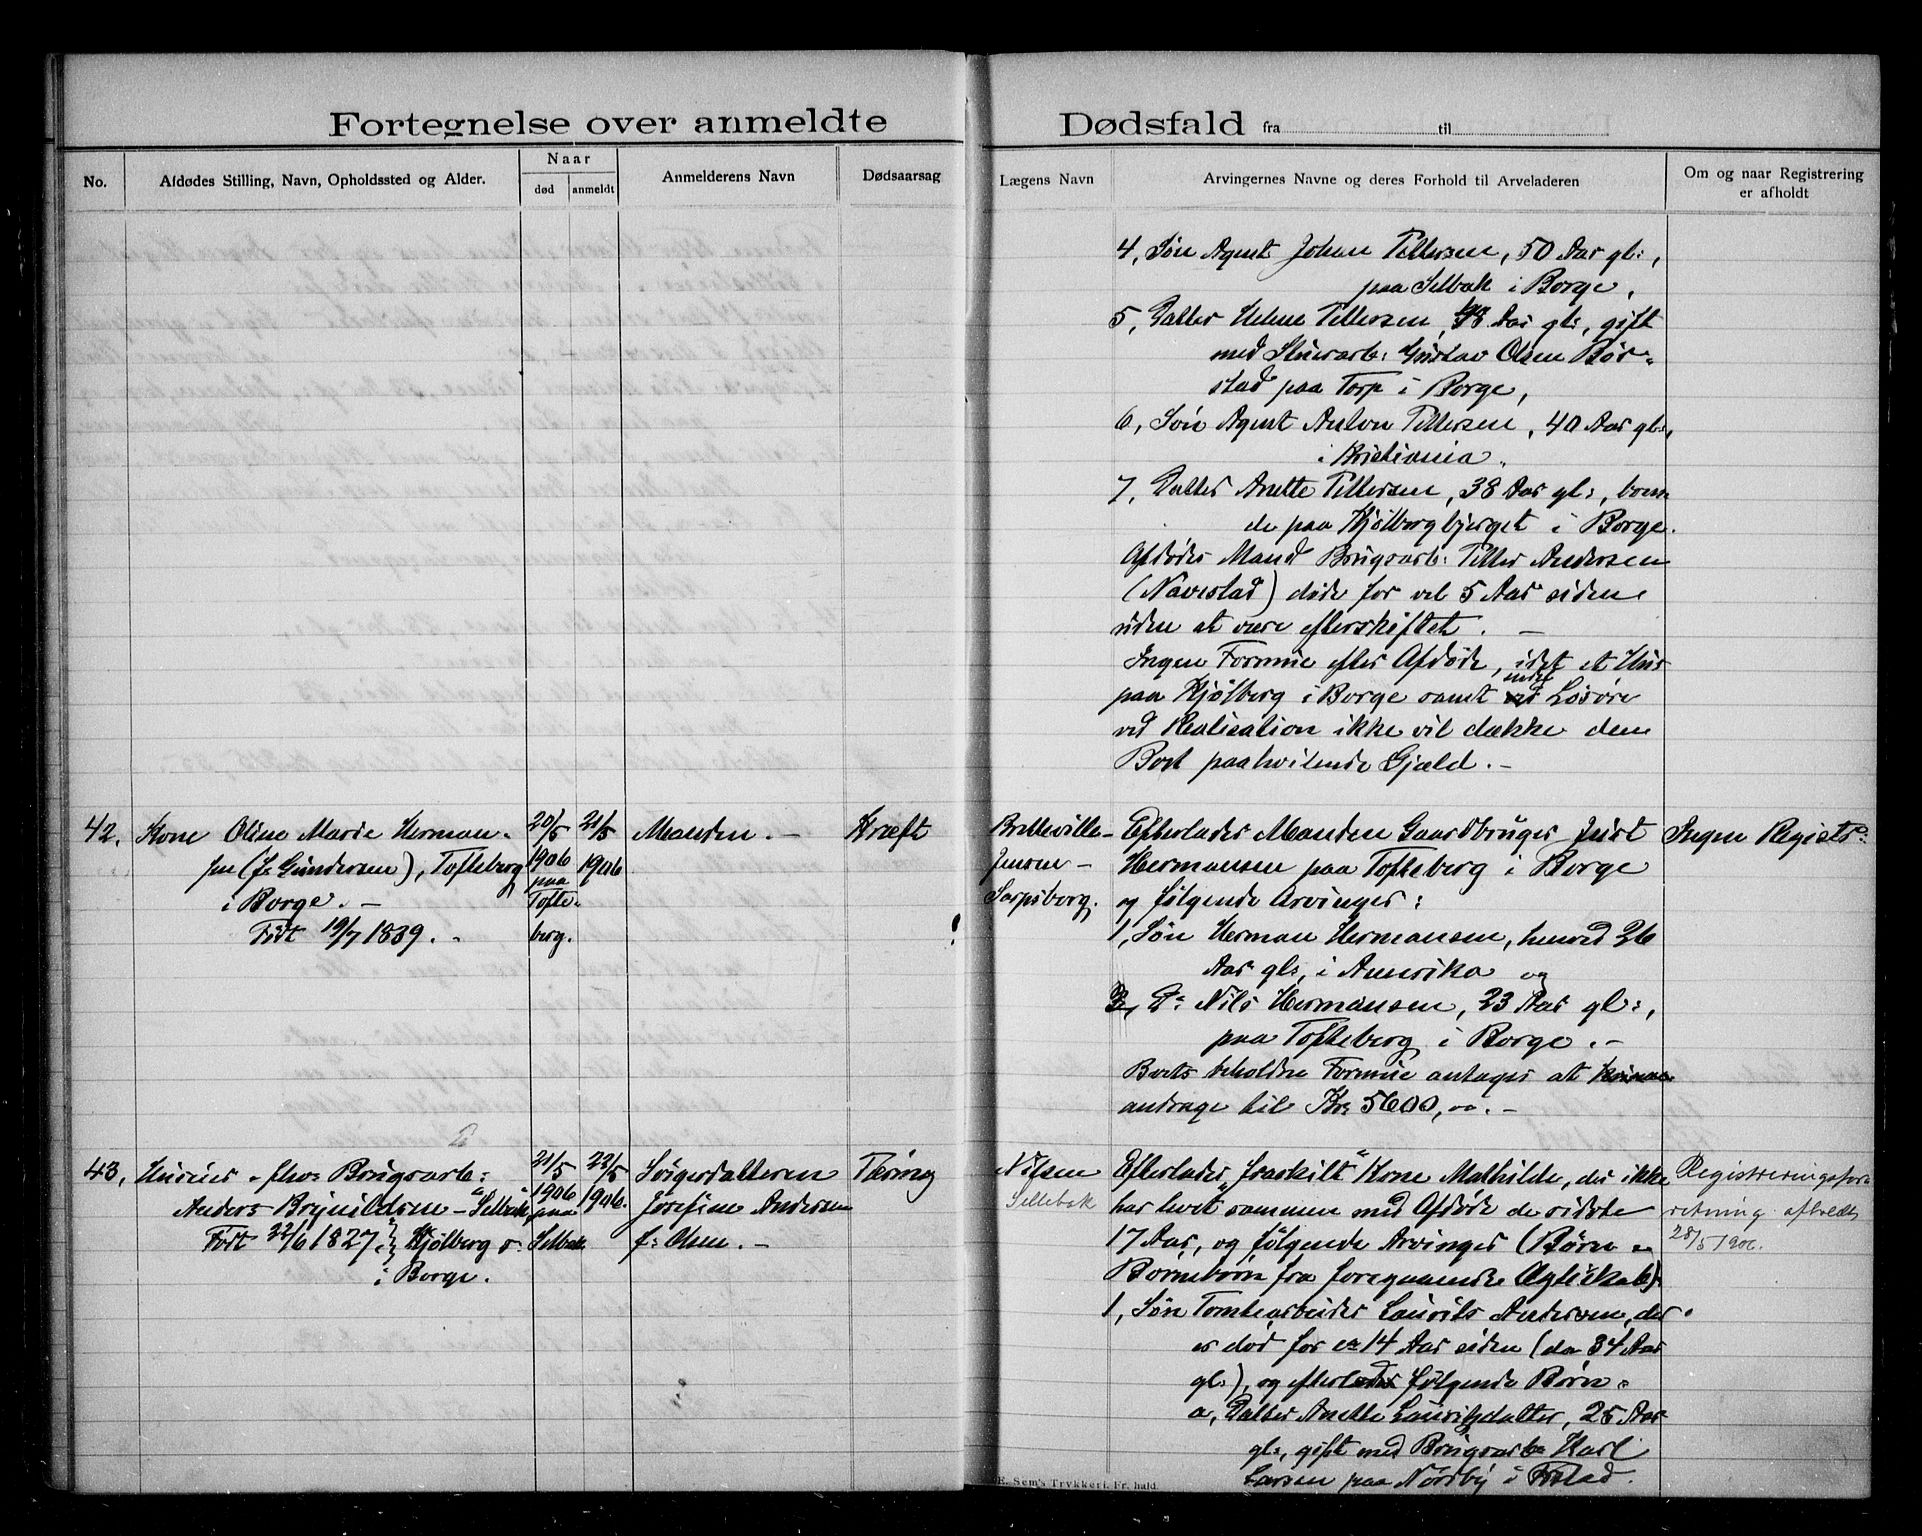 Fortegnelse over anmeldte
Dødsfald fra til
No.
Afdødes Stilling, Navn, Opholdssted og Alder.
Naar
død
anmeldt
Anmelderens Navn
Dødsaarsag
Lægens Navn
Arvingernes Navne og deres Forhold til Arveladeren
Om og naar Registrering
er afholdt
4, Søn Agent Johan Pettersen, 50 Aar gl:,
paa Selbak i Borge,
5, Datter Helene Pettersen, Aar gl:, gift
med Stuerarb: Gustav Olsen Bør-
stad paa Torp i Borge,
6, Søn Agent Anton Pettersen, 40 Aar gl:,
i Kristiania.
7, Datter Anette Pettersen, 38 Aar gl:, boen-
de paa Kjølbergbjerget i Borge.
Afdødes Mand Brugsarb: Petter Andersen
(Navestad) døde for vel 5 Aar siden
uden at være efterskiftet. -
Ingen Formue efter Afdøde, idet et Hus
paa Kjølberg i Borge samt Løsøre
ved Realisation ikke vil dække den
Boet paahvilende Gjæld. -
42.
Kone Oline Marie Herman-
sen (f: Gundersen), Tofteberg
i Borge. -
Født 19/7 1839. -
20/5
1906
paa
Tofte-
berg.
21/5
1906
Manden. -
Kræft
Bretteville-
Jensen -
Sarpsborg.
Efterlader Manden Gaardbruger Just
Hermansen paa Tofteberg i Borge
og følgende Arvinger:
1, Søn Herman Hermansen, henved 26
Aar gl:, i Amerika og
2, D: Nils Hermansen, 23 Aar gl:,
paa Tofteberg i Borge. -
Boets beholdne Formue antages at
andrage til Kr: 5600,00. -
Ingen Registr:
43.
Husmer - fhv: Brugsarb:
Anders Brynildsen - "Selbak"
Født 22/6 1827. Kjølberg
i Borge.
21/5
1906
paa
Selbak
22/5
1906.
Svigerdatteren
Josefine Andersen
f: Olsen. -
Tæring
Nilsen
Sellebak
Efterlader "fraskilt" Kone Mathilde, der ikke
har levet sammen med Afdøde de sidste
17 Aar, og følgende Arvinger (Børn &
Børnebørn fra foregaaende Ægteskab):
1, Søn Tomtearbeider Laurits Andersen, der
er død for ca 14 Aar siden (da 34 Aar
gl:), og efterlader følgende Børn:
a, Datter Anette Lauritzdatter, 25 Aar
gl:, gift med Brugsarb: Karl
Larsen paa Nordby i
Registreringsfor-
retning afholdt
28/5 1906.
E. Sem's Trykkeri, Fr.hald.